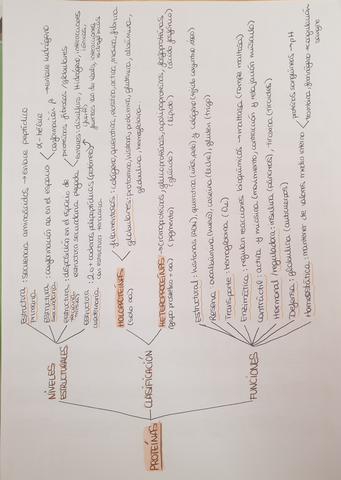 PROTEÍNAS
NIVELES
ESTRUCTURALES
Estructura primaria : Secuencia aminoácidos → enlace peptídico
Estructura secundaria : conformación aa en el espacio
α-hélice
conformación β → enlace hidrógeno
Estructura terciaria : disposición en el espacio de
estructura secundaria plegada
proteínas fibrosas / globulares
enlaces: disulfuro, Hidrógeno, interacciones
puentes, van der Waals, interacciones
Estructura cuaternaria : 2 o + cadenas polipeptídicas (protómero)
en estructura terciaria
CLASIFICACIÓN
HOLOPROTEÍNAS
(solo aa)
filamentosas : colágeno, queratina, elastina, actina, miosina, fibrina
globulares : protaminas, histonas, prolaminas, gluteninas, albúminas,
globulinas, hemoglobina.
HETEROPROTEÍNAS → (cromoproteínas, glucoproteínas, lipoproteínas, fosfoproteínas)
(grupo prostético + aa) (pigmento) (glúcido) (lípido) (ácido fosfórico)
FUNCIONES
Estructural : histonas (ADN), queratina (uñas, pelo) y colágeno (tejido conjuntivo, óseo)
Reserva : ovoalbúmina (huevo), caseína (leche), gluten (trigo)
Transporte : Hemoglobina (O₂)
Enzimática : regulan reacciones bioquímicas → maltasa (rompe maltosa)
Contráctil : actina y miosina (movimiento, contracción y relajación músculo)
Hormonal / reguladora : insulina (páncreas), Tiroxina (tiroides)
Defensa : γ globulina (anticuerpos)
Homeostática : mantener de valores medio interno
proteínas sanguíneas → pH
trombina, fibrinógeno → coagulación
sangre